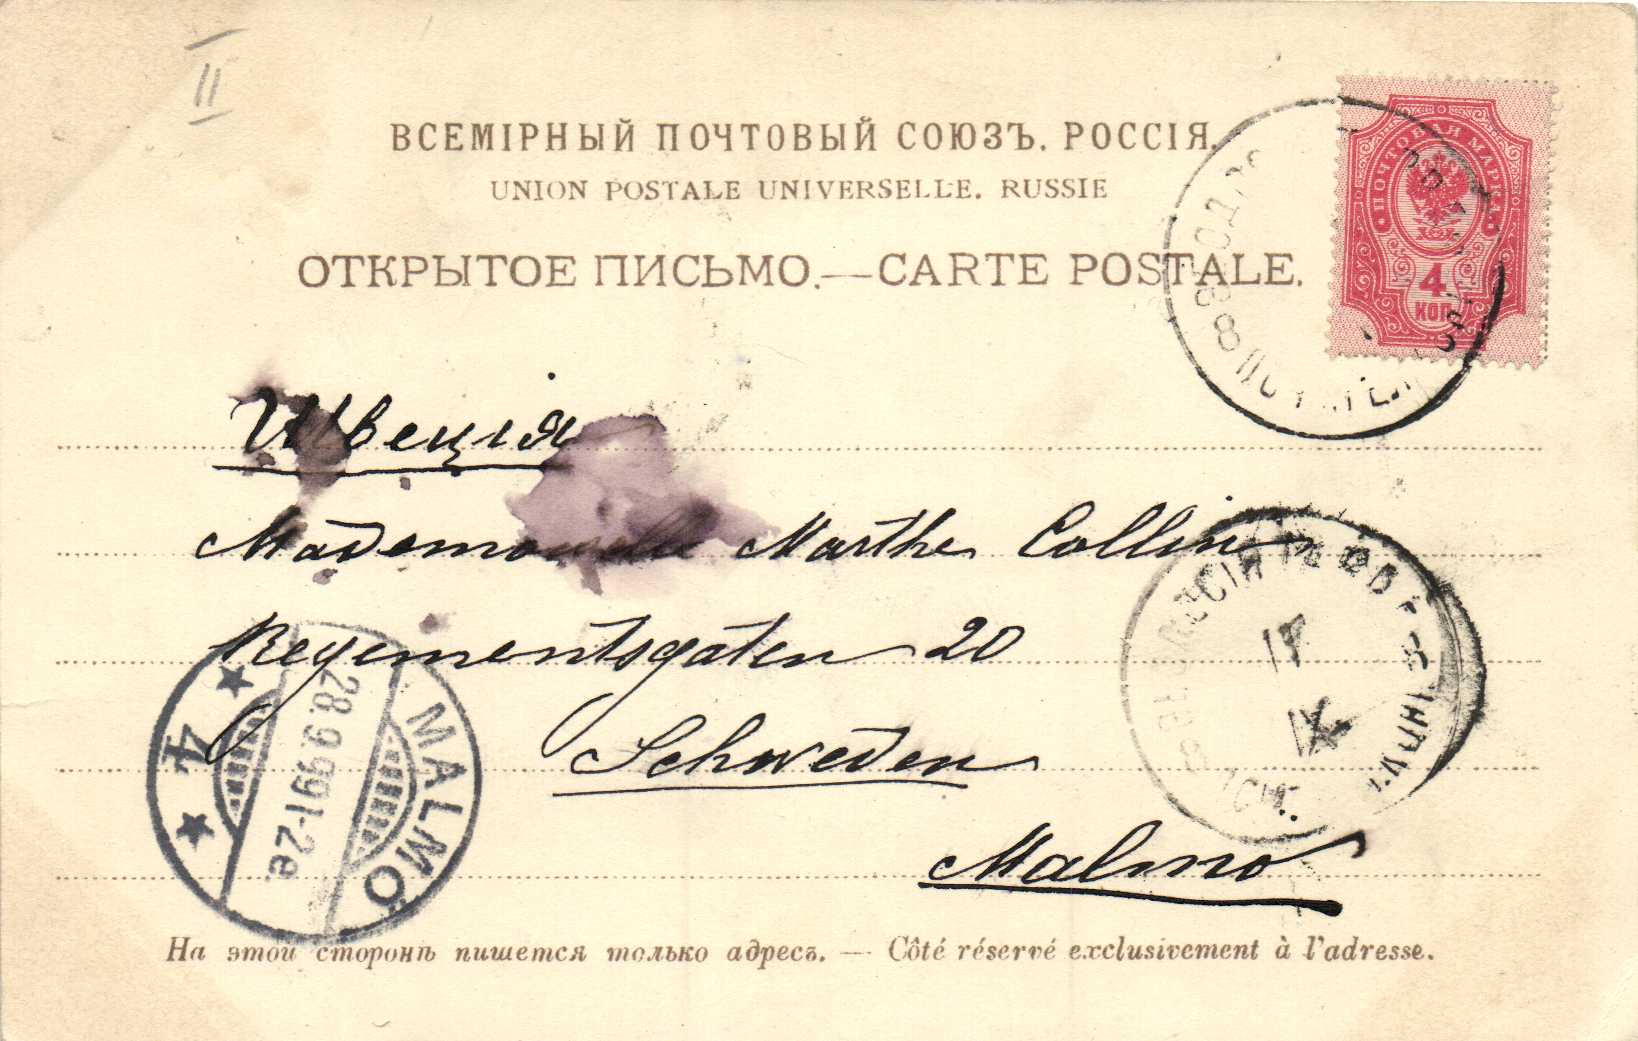 II
ВСЕМІРНЫЙ ПОЧТОВЫЙ СОЮЗЪ. РОССІЯ.
UNION POSTALE UNIVERSELLE. RUSSIE
ОТКРЫТОЕ ПИСЬМО.—CARTE POSTALE.
ПОЧТОВАЯ МАРКА
4
КОП.
Швеція
Mademoiselle Marthe Collin
Regementsgaten 20
Schweden
Malmo
MALMÖ
28.9.99 1-2 e.
4
17
IX
На этой сторонѣ пишется только адресъ. — Côté réservé exclusivement à l'adresse.